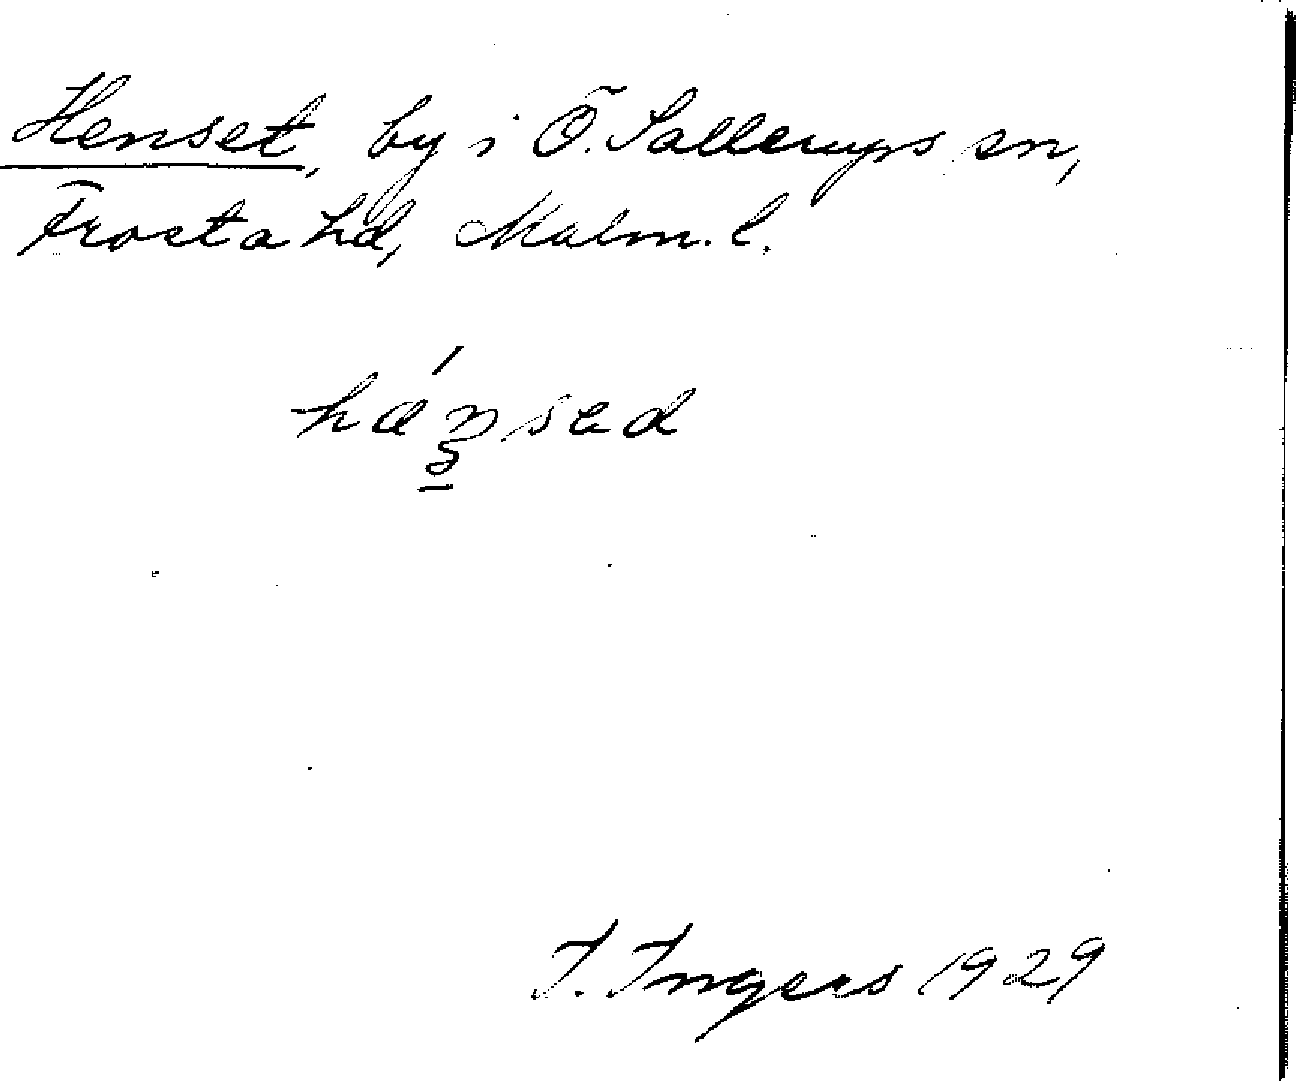 Henset, by i Ö. Sallerups sn,
Frosta hd, Malm. l.
hǽnsad
I. Ingers 1929